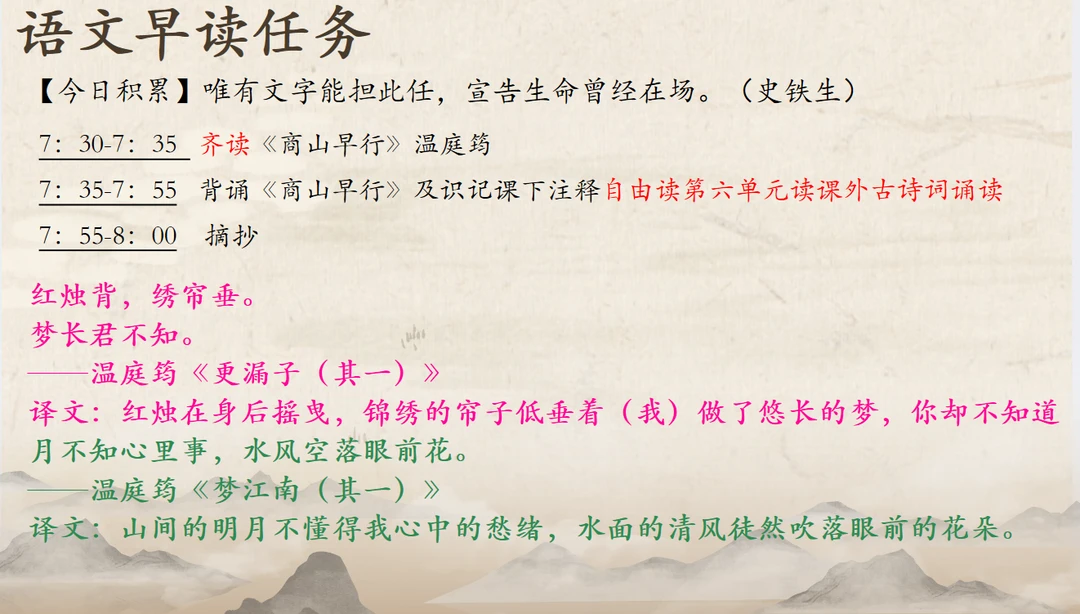 语文早读任务
【今日积累】唯有文字能担此任，宣告生命曾经在场。（史铁生）
7：30-7：35 齐读《商山早行》温庭筠
7：35-7：55 背诵《商山早行》及识记课下注释自由读第六单元读课外古诗词诵读
7：55-8：00 摘抄
红烛背，绣帘垂。
梦长君不知。
——温庭筠《更漏子（其一）》
译文：红烛在身后摇曳，锦绣的帘子低垂着（我）做了悠长的梦，你却不知道
月不知心里事，水风空落眼前花。
——温庭筠《梦江南（其一）》
译文：山间的明月不懂得我心中的愁绪，水面的清风徒然吹落眼前的花朵。